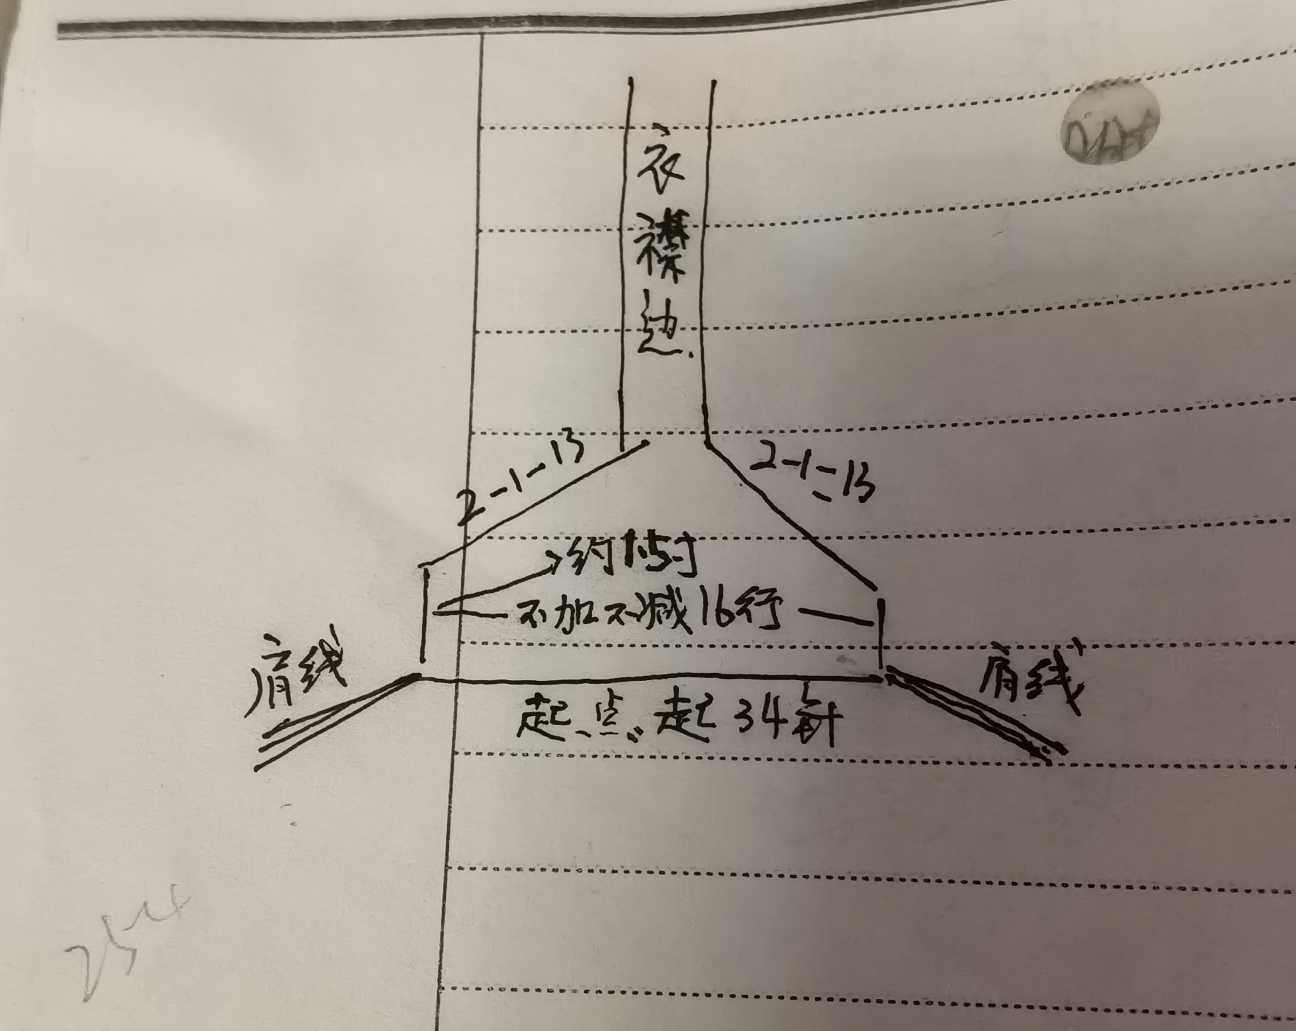 衣
襟
边
2-1-13
2-1-13
约1.5寸
不加不减16行
肩线
肩线
起点起34针
254